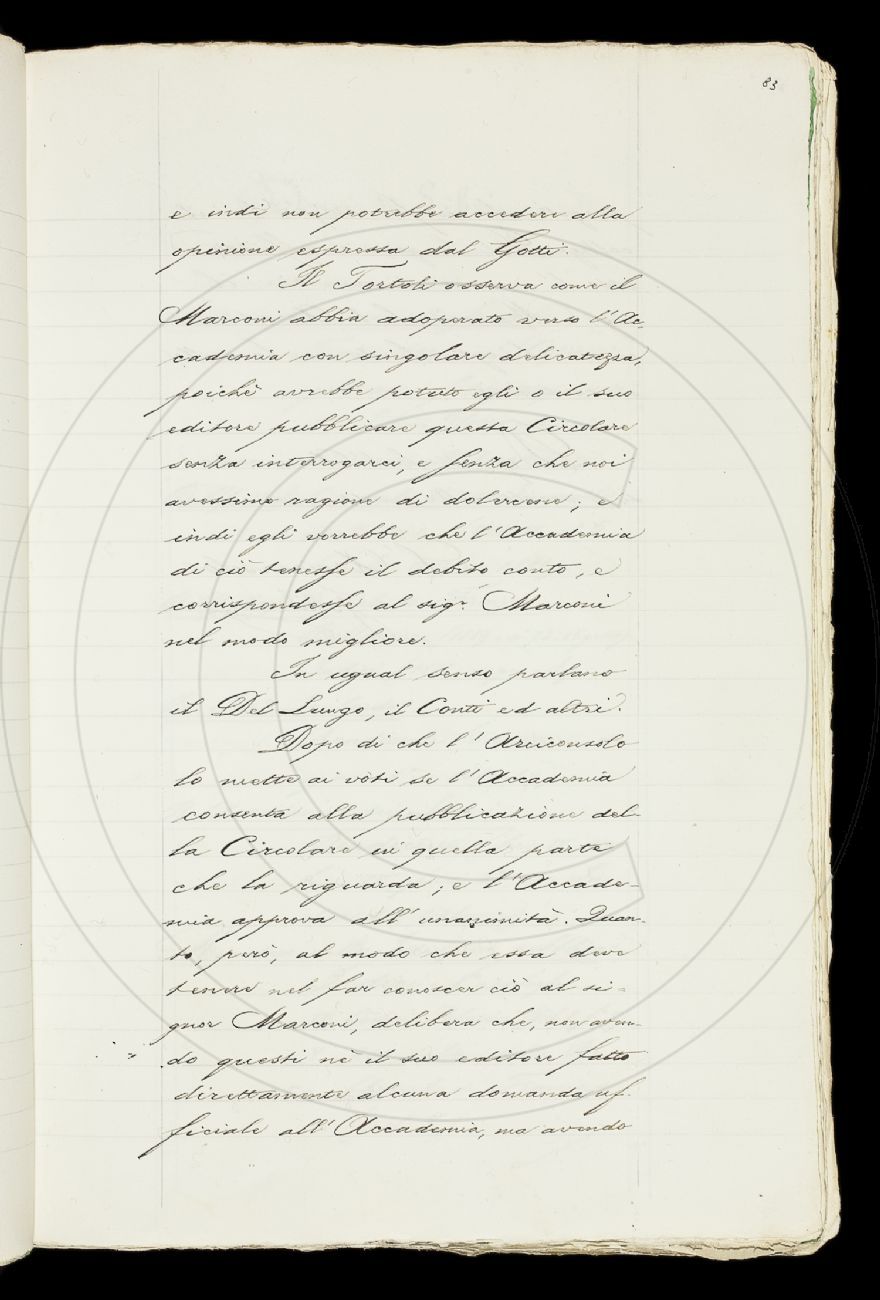 83
e indi non potrebbe accedere alla
opinione espressa dal Gotti.
Il Tortoli osserva come il
Marconi abbia adoperato verso l'Ac-
cademia con singolare delicatezza,
poichè avrebbe potuto egli o il suo
editore pubblicare questa Circolare
senza interrogarci, e senza che noi
avessimo ragione di dolercene; e
indi egli vorrebbe che l'Accademia
di ciò tenesse il debito conto, e
corrispondesse al sigr. Marconi
nel modo migliore.
In ugual senso parlano
il Del Lungo, il Conti ed altri.
Dopo di che l'Arciconsolo
lo mette ai voti se l'Accademia
consenta alla pubblicazione del-
la Circolare in quella parte
che la riguarda; e l'Accade-
mia approva all'unanimità. Quan-
to, però, al modo che essa deve
tenere nel far conoscer ciò al si-
gnor Marconi, delibera che, non aven-
do questi nè il suo editore fatto
direttamente alcuna domanda uf-
ficiale all'Accademia, ma avendo